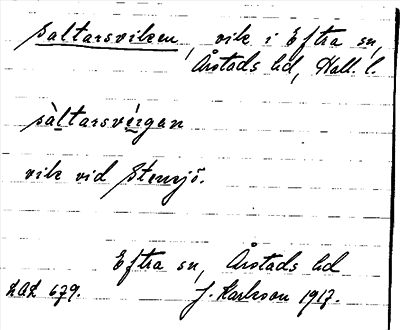 Saltarsviken, vik i Eftra sn,
Årstads hd, Hall. l.
sàltarsvéigan
vik vid Stensjö.
Eftra sn, Årstads hd
LAL 679. J. Karlsson 1917.